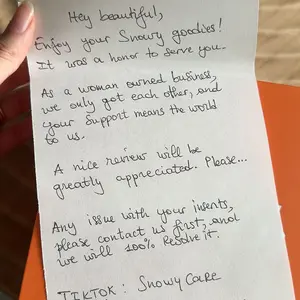 Hey beautiful,
Enjoy your Snowy goodies!
It was a honor to serve you.
As a woman owned business,
we only got each other, and
your support means the world
to us.
A nice review will be
greatly appreciated. Please...
Any issue with your inserts,
please contact us first, and
we will 100% Resolve it.
TIKTOK: Snowy Care